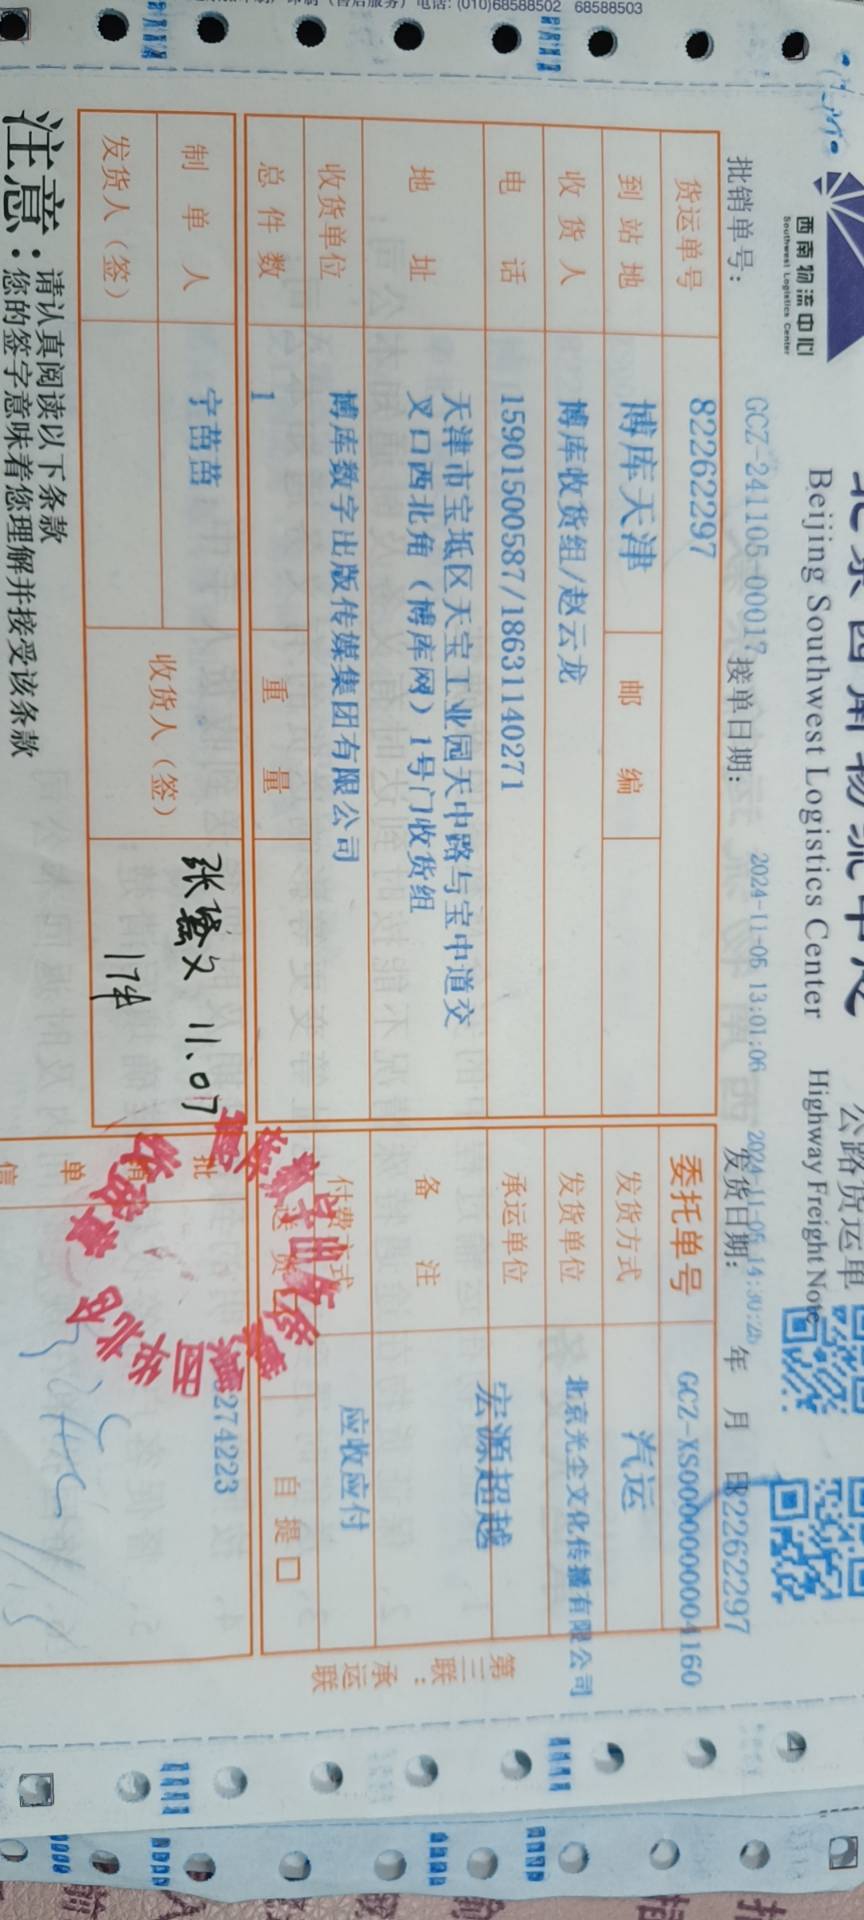 西南物流中心
Southwest Logistics Center
北京西南物流中心
公路货运单
Beijing Southwest Logistics Center
Highway Freight Note
批销单号: GCZ-241105-00017 接单日期: 2024-11-05 13:01:06 发货日期: 年 月 日 82262297
货运单号 82262297 委托单号 GCZ-XS0000000004160
到站地 博库天津 邮编 发货方式 汽运
收货人 博库收货组/赵云龙 发货单位 北京光尘文化传播有限公司
电话 15901500587/18631140271 承运单位 宏源超越
地址 天津市宝坻区天宝工业园天中路与宝中道交
叉口西北角（博库网）1号门收货组
备注
收货单位 博库数字出版传媒集团有限公司 付费方式 应收应付
总件数 1 重量 送货 自提 □
制单人 宁苗苗 批 274223
发货人（签） 收货人（签） 11.07
1件
单
信
注意：
请认真阅读以下条款
您的签字意味着您理解并接受该条款
第三联：承运联
（售后服务）电话: (010)68588502 68588503